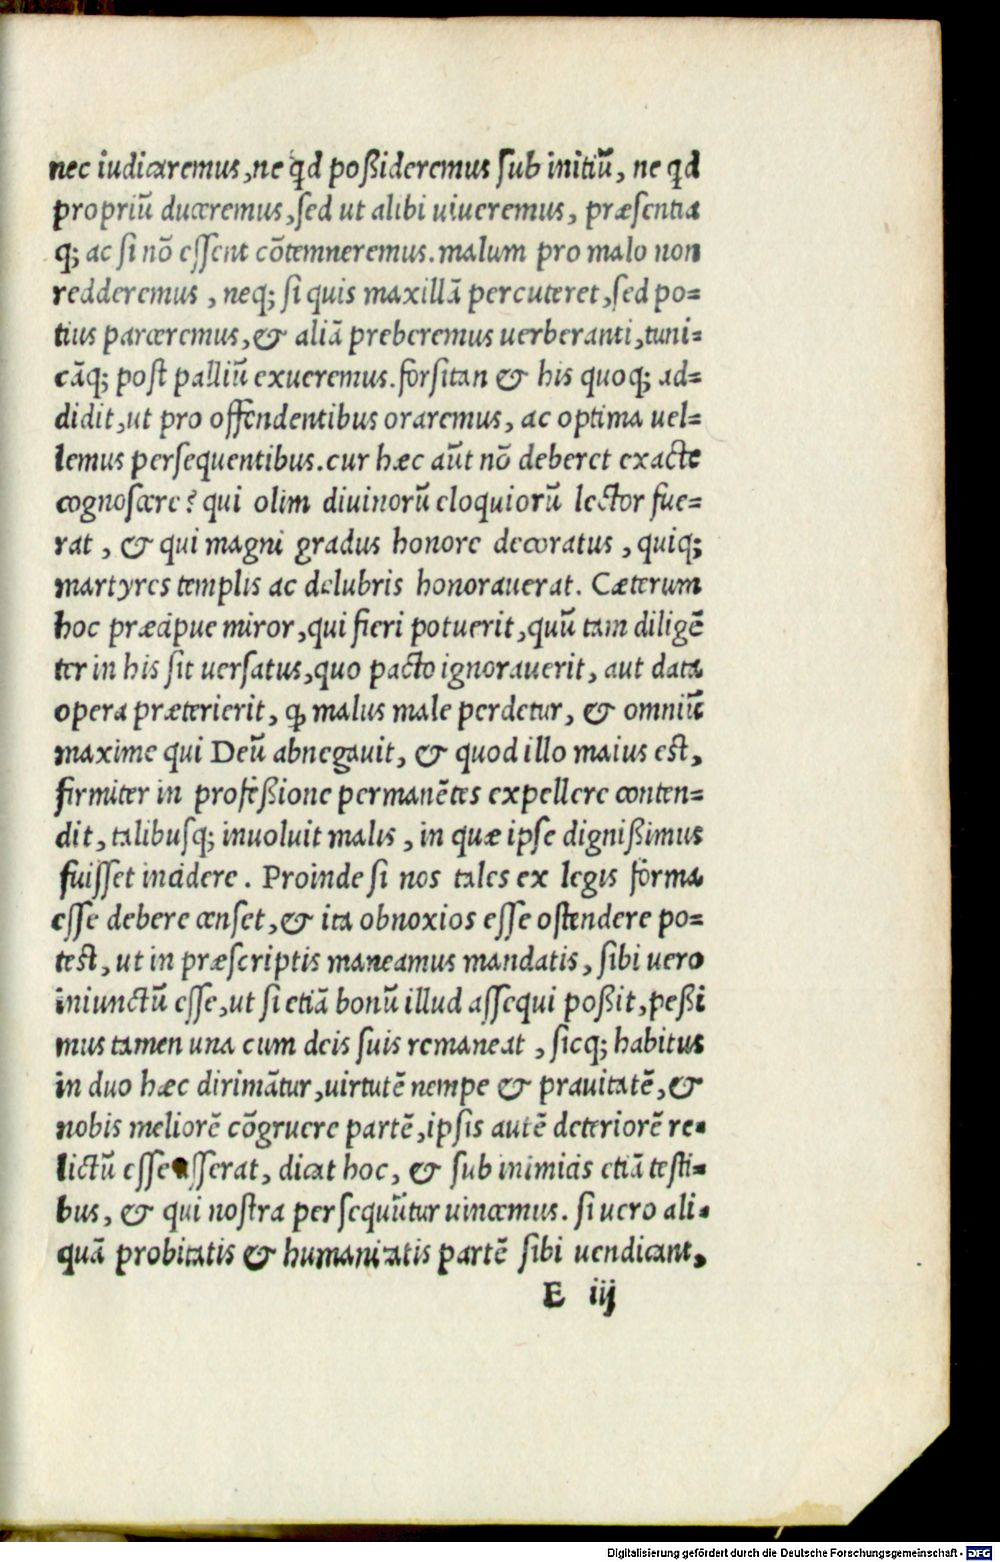 nec iudicaremus, ne qd poßideremus sub initiū, ne qd
propriū duceremus, sed ut alibi uiueremus, præsentia
q; ac si nō essent cōtemneremus. malum pro malo non
redderemus, neq; si quis maxillā percuteret, sed po=
tius parceremus, & aliā preberemus uerberanti, tuni=
cāq; post palliū exueremus. forsitan & his quoq; ad=
didit, ut pro offendentibus oraremus, ac optima uel=
lemus persequentibus. cur hæc aūt nō deberet exacte
cognoscere? qui olim diuinorū eloquiorū lector fue=
rat, & qui magni gradus honore decoratus, quiq;
martyres templis ac delubris honorauerat. Cæterum
hoc præcipue miror, qui fieri potuerit, quū tam diligē
ter in his sit uersatus, quo pacto ignorauerit, aut data
opera præterierit, ꝙ malus male perdetur, & omniū
maxime qui Deū abnegauit, & quod illo maius est,
firmiter in profeßione permanētes expellere conten=
dit, talibusq; inuoluit malis, in quæ ipse dignißimus
fuisset incidere. Proinde si nos tales ex legis forma
esse debere censet, & ita obnoxios esse ostendere po=
test, ut in præscriptis maneamus mandatis, sibi uero
iniunctū esse, ut si etiā bonū illud assequi poßit, peßi
mus tamen una cum deis suis remaneat, sicq; habitus
in duo hæc dirimātur, uirtutē nempe & prauitatē, &
nobis meliorē cōgruere partē, ipsis autē deteriorē re=
lictū esse asserat, dicat hoc, & sub inimicis etiā testi=
bus, & qui nostra persequūtur uincemus. si uero ali=
quā probitatis & humanitatis partē sibi uendicant,
E iij
Digitalisierung gefördert durch die Deutsche Forschungsgemeinschaft - DFG